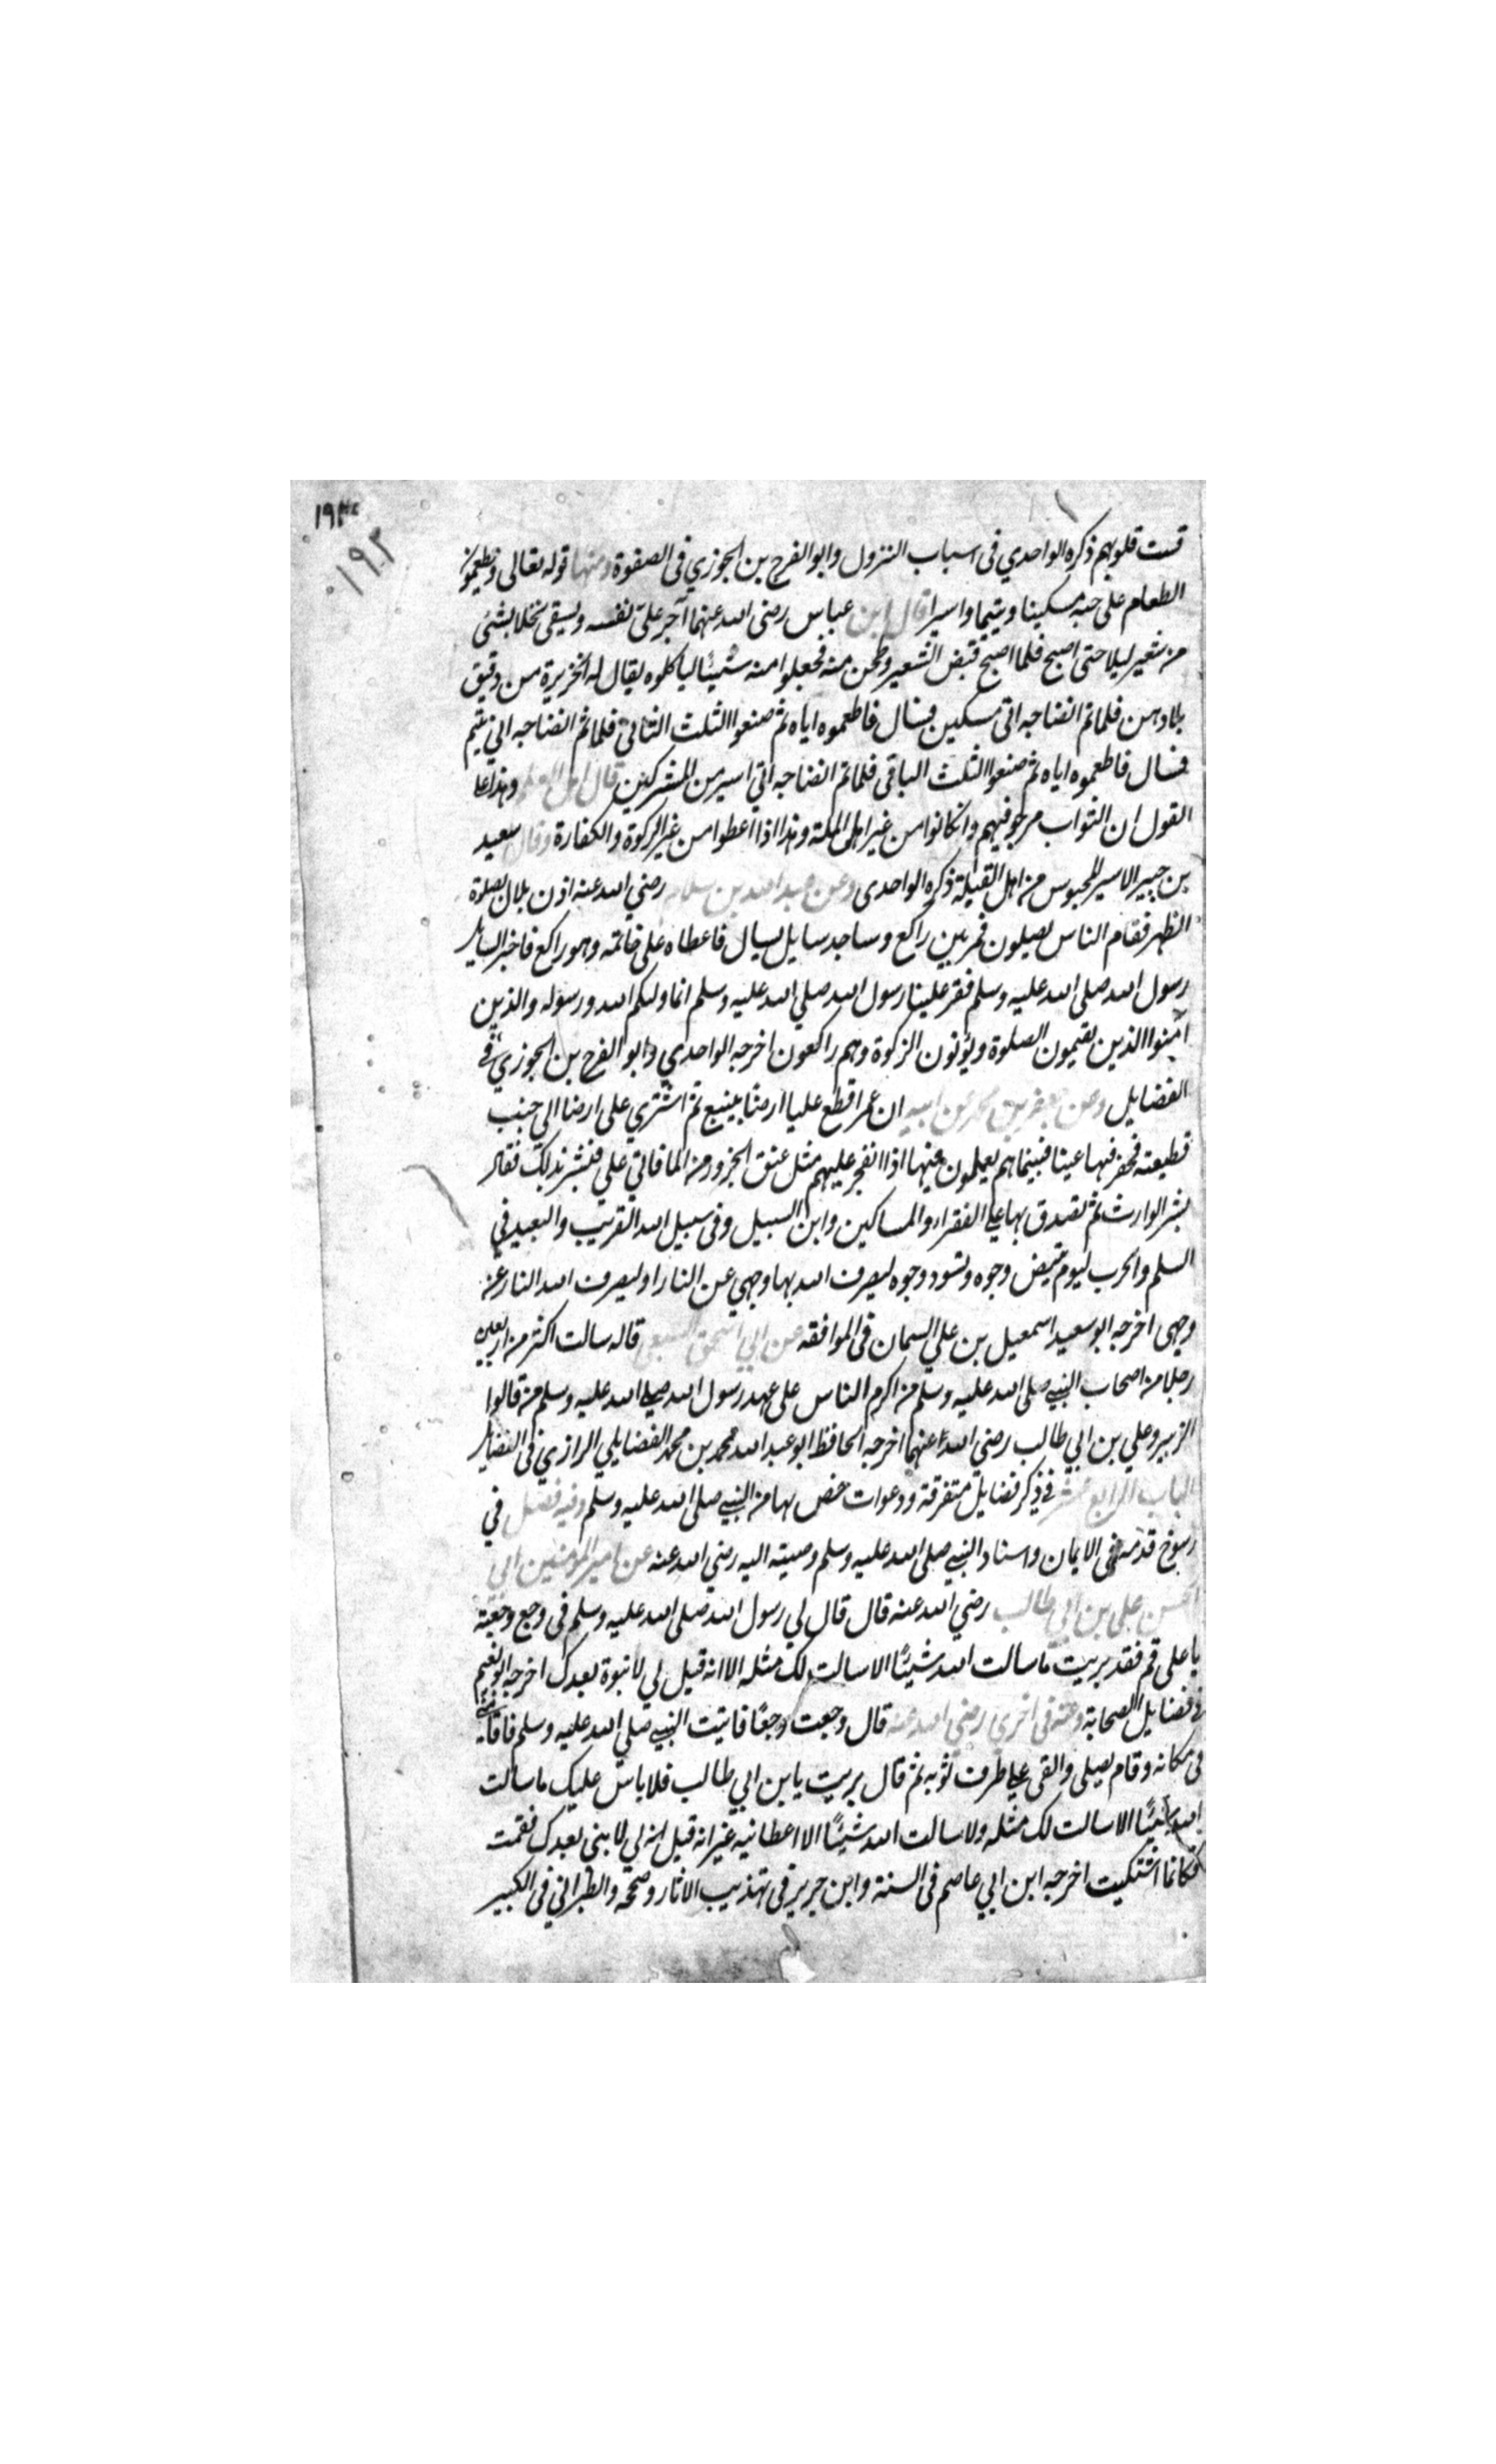 ١٩٢
١٩٢
قست قلوبهم ذكره الواحدي فى اسباب النزول وابو الفرج بن الجوزي فى الصفوة ومنها قوله تعالى ويطعمون
الطعام على حبه مسكينا ويتيما واسيرا قال ابن عباس رضى الله عنهما آجر على نفسه ويسقى نخلا بشئ
من شعير ليلا حتى اصبح فلما اصبح قبض الشعير وطحن منه فجعلوا منه شيئا لياكلوه يقال له الخزيرة من دقيق
بلا دهن فلما تم انضاجه اتى مسكين فسال فاطعموه اياه ثم صنعوا الثلث الثانى فلما تم انضاجه اتي يتيم
فسال فاطعموه اياه ثم صنعوا الثلث الباقى فلما تم انضاجه اتي اسير من المشركين قال اهل العلم وهذا على
القول ان الثواب مرجو فيهم وان كانوا من غير اهل الملة وهذا اذا اعطوا من غير الزكوة والكفارة وقال سعيد
بن جبير الاسير المحبوس من اهل القبلة ذكره الواحدى وعن عبد الله بن سلام رضي الله عنه اذن بلال بصلوة
الظهر فقام الناس يصلون فمن بين راكع وساجد سايل يسال فاعطاه على خاتمه وهو راكع فاخبر السايل
رسول الله صلى الله عليه وسلم فقر علينا رسول الله صلي الله عليه وسلم انما وليكم الله ورسوله والذين
آمنوا الذين يقيمون الصلوة ويؤتون الزكوة وهم راكعون اخرجه الواحدي وابو الفرج بن الجوزي في
الفضايل وعن جعفر بن محمد عن ابيه ان عمر اقطع عليا ارضا بينبع ثم اشتري على ارضا الي جنب
قطيعته فحفر فيها عينا فبينما هم يعملون فيها اذا انفجر عليهم مثل عنق الجزور من الما فاتي علي فبشر بذلك فقال
بشر الوارث ثم تصدق بها على الفقراء والمساكين وابن السبيل وفى سبيل الله القريب والبعيد في
السلم والحرب ليوم تبيض وجوه وتسود وجوه ليصرف الله بها وجهي عن النار او ليصرف الله النار عن
وجهى اخرجه ابو سعيد اسمعيل بن علي السمان فى الموافقه عن ابي اسحق السبيعي قاله سالت اكثر من اربعين
رجلا من اصحاب النبي صلى الله عليه وسلم من اكرم الناس على عهد رسول الله صلى الله عليه وسلم من قالوا
الزبير وعلي بن ابي طالب رضي الله عنهما اخرجه الحافظ ابو عبد الله محمد بن محمد الفضايلي الرازي فى الفضايل
الباب الرابع عشر في ذكر فضايل متفرقة ودعوات خص بها من النبي صلى الله عليه وسلم وفيه فصل في
رسوخ قدمه فى الايمان واسناد النبي صلى الله عليه وسلم وصيته اليه رضي الله عنه عن امير المؤمنين ابي
الحسن على بن ابي طالب رضي الله عنه قال قال لي رسول الله صلى الله عليه وسلم فى وجع وجعته
يا على قم فقد بريت ما سالت الله شيئا الا سالت لك مثله الا انه قيل لي لا نبوة بعدك اخرجه ابو نعيم
في فضايل الصحابة وعنه فى اخري رضي الله عنه قال وجعت وجعا فاتيت النبي صلى الله عليه وسلم فاقامنى
فى مكانه وقام يصلى والقى علي طرف ثوبه ثم قال بريت يا بن ابي طالب فلا باس عليك ما سالت
الله شيئا الا سالت لك مثله ولا سالت الله شيئا الا اعطانيه غير انه قيل انه لي لا نبى بعدك فقمت
فكانما اشتكيت اخرجه ابن ابي عاصم فى السنة وابن جرير فى تهذيب الاثار وصححه والطبراني فى الكبير